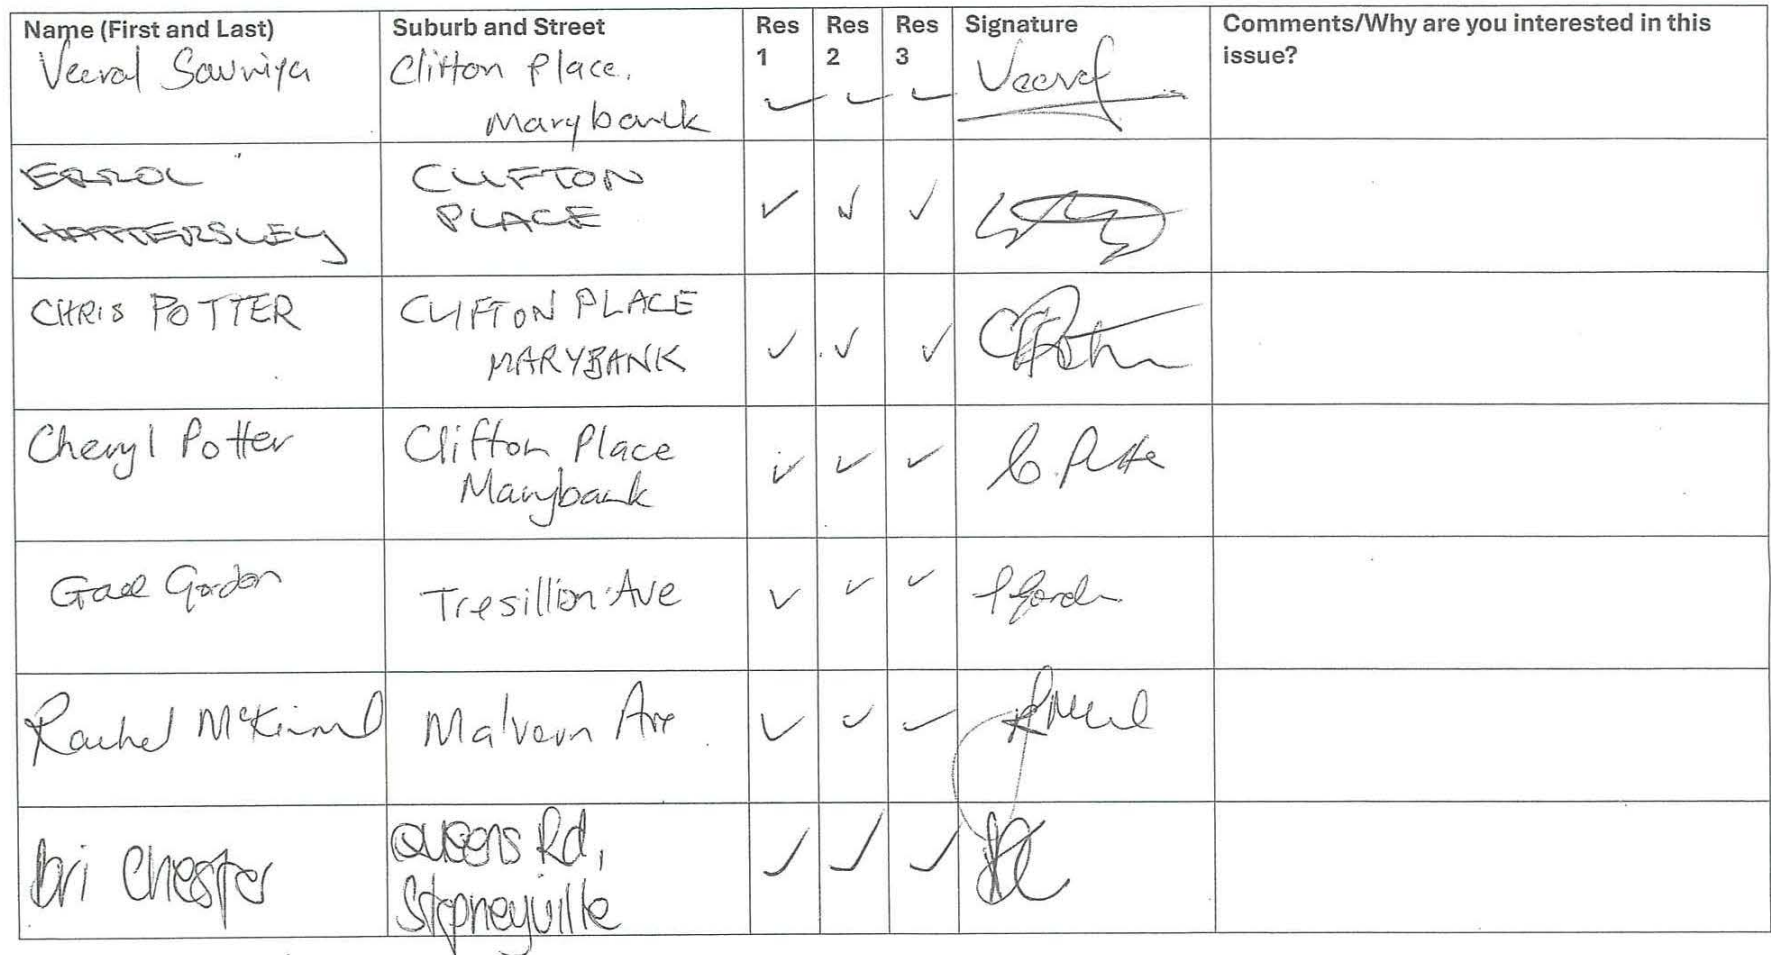 Name (First and Last) Suburb and Street Res 1 Res 2 Res 3 Signature Comments/Why are you interested in this issue?
Veeral Savriya Clifton Place,
Marybank
✓ ✓ ✓ Veeral
ERROL CLIFTON
HATTERSLEY PLACE
✓ ✓ ✓
CHRIS POTTER CLIFTON PLACE
MARYBANK
✓ ✓ ✓
Cheryl Potter Clifton Place
Marybank
✓ ✓ ✓ C. Potte
Gael Gordon Tresillion Ave ✓ ✓ ✓ Gordon
Rachel Malvern Ave ✓ ✓ ✓
bri Chester Queens Rd,
Stepneyville
✓ ✓ ✓